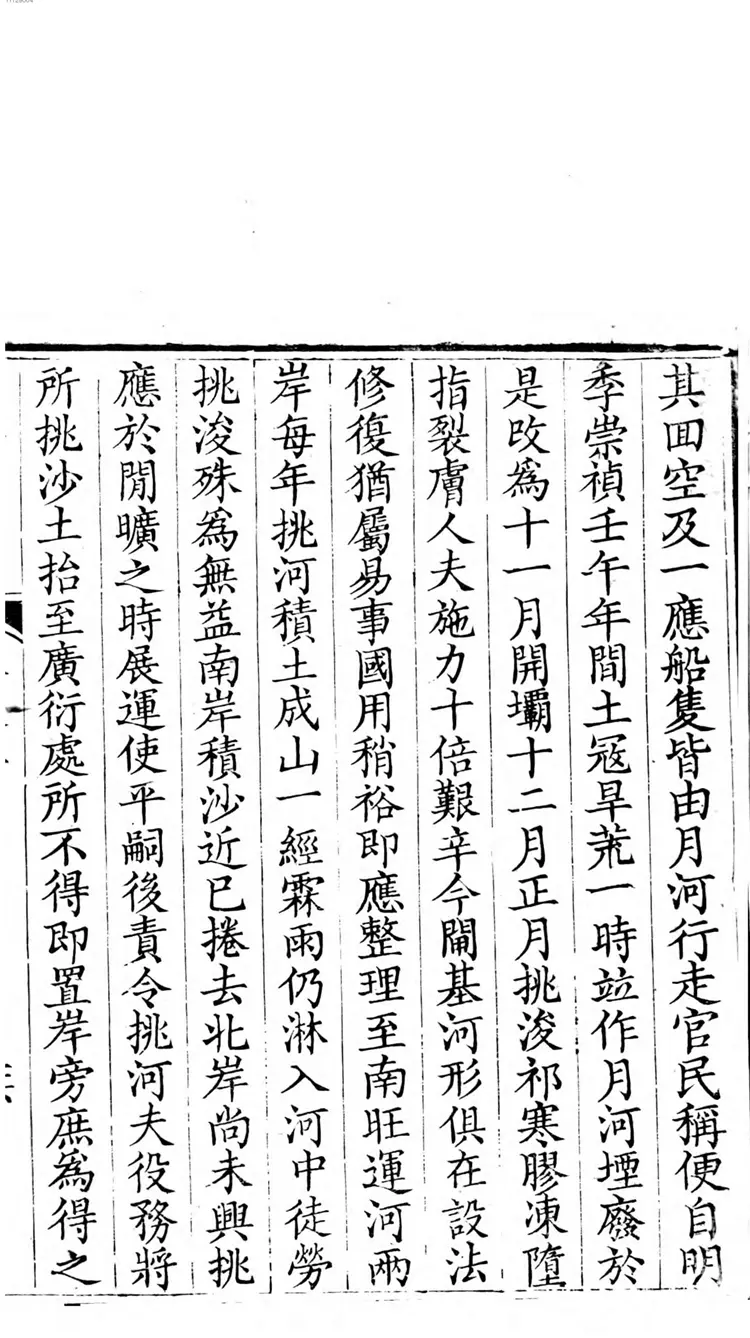 其囬空及一應船隻皆由月河行走官民稱便自明
季崇禎壬午年間土冦旱荒一時竝作月河堙廢於
是改爲十一月開壩十二月正月挑浚祁寒膠凍墮
指裂膚人夫施力十倍艱辛今閘基河形俱在設法
修復猶屬易事國用稍裕即應整理至南旺運河兩
岸每年挑河積土成山一經霖雨仍淋入河中徒勞
挑浚殊爲無益南岸積沙近已捲去北岸尚未興挑
應於閒曠之時展運使平嗣後責令挑河夫役務將
所挑沙土抬至廣衍處所不得即置岸旁庶爲得之